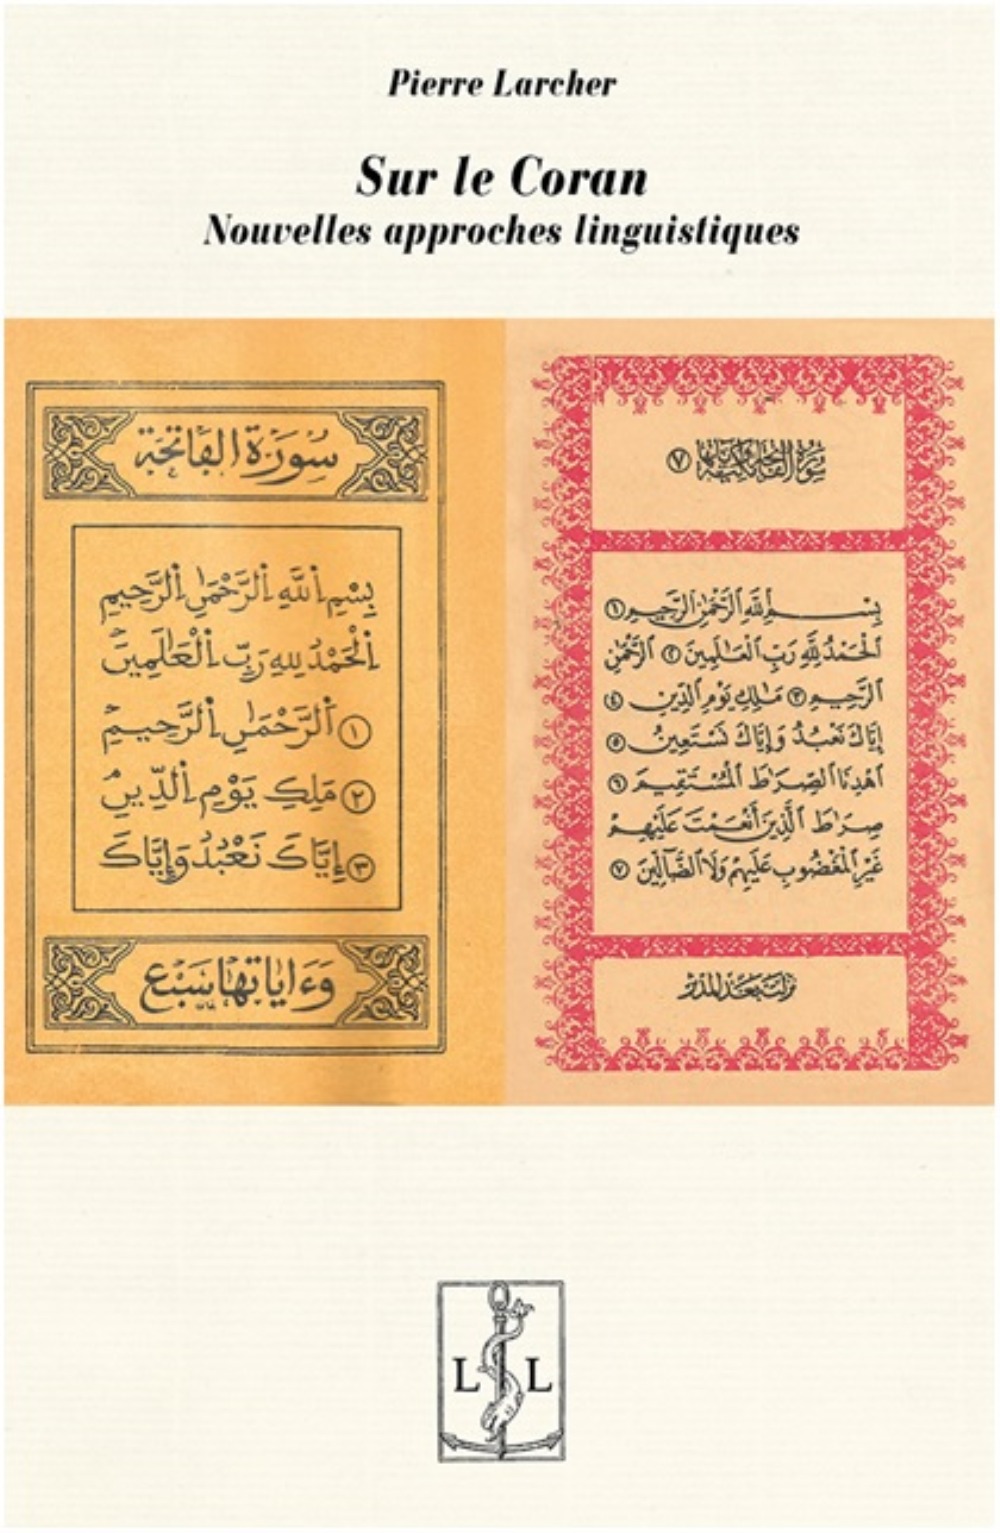 Pierre Larcher
Sur le Coran
Nouvelles approches linguistiques
سُورَةُ الْفَاتِحَةِ
بِسْمِ اِللَّهِ اِلرَّحْمَٰنِ اِلرَّحِيمِ
اِلْحَمْدُ لِلهِ رَبِّ اِلْعَٰلَمِينَ
١ اَلرَّحْمَٰنِ اِلرَّحِيمِ
٢ مَلِكِ يَوْمِ اِلدِّينِ
٣ إِيَّاكَ نَعْبُدُ وَإِيَّاكَ
وَءَايَاتُهَا سَبْعٌ
سورة الفاتحة مكية وآياتها ٧
بِسْمِ ٱللَّهِ ٱلرَّحْمَٰنِ ٱلرَّحِيمِ ١
ٱلْحَمْدُ لِلَّهِ رَبِّ ٱلْعَٰلَمِينَ ٢ ٱلرَّحْمَٰنِ
ٱلرَّحِيمِ ٣ مَٰلِكِ يَوْمِ ٱلدِّينِ ٤
إِيَّاكَ نَعْبُدُ وَإِيَّاكَ نَسْتَعِينُ ٥
ٱهْدِنَا ٱلصِّرَٰطَ ٱلْمُسْتَقِيمَ ٦
صِرَٰطَ ٱلَّذِينَ أَنْعَمْتَ عَلَيْهِمْ
غَيْرِ ٱلْمَغْضُوبِ عَلَيْهِمْ وَلَا ٱلضَّآلِّينَ ٧
نزلت بعد المدثر
L L